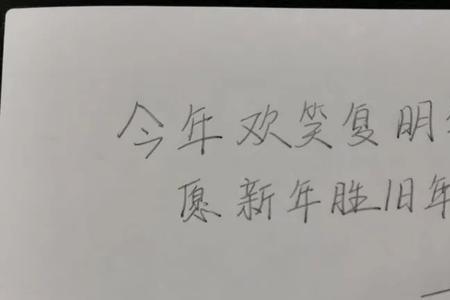 今年欢笑复明
愿新年胜旧年